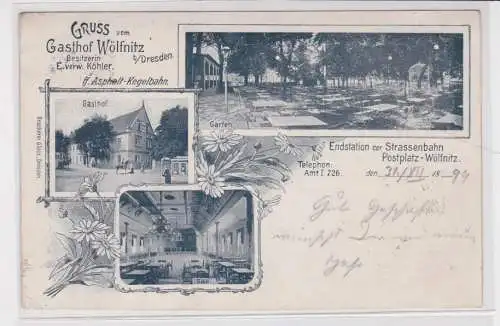 GRUSS vom
Gasthof Wölfnitz
b/Dresden.
Besitzerin
E. verw. Köhler.
ff. Asphalt-Kegelbahn.
Gasthof
Garten
Endstation der Strassenbahn
Postplatz-Wölfnitz.
Telephon:
Amt I 726.
den 31/VII 1899
Gute
wünscht
Saal